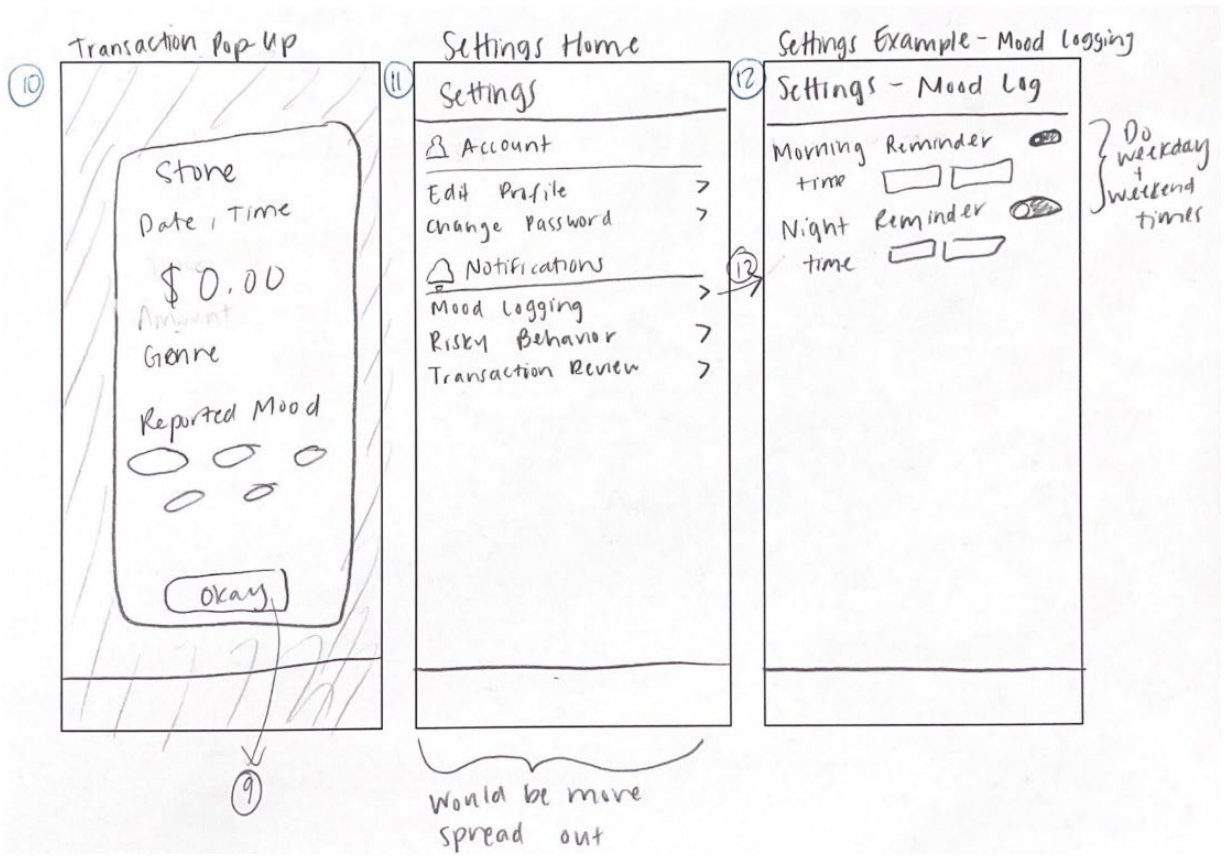 Transaction Pop-Up
10
Store
Date, Time
$0.00
Amount
Genre
Reported Mood
Okay
9
Settings Home
11
Settings
Account
Edit Profile >
Change Password >
Notifications
Mood Logging >
12
Risky Behavior >
Transaction Review >
Would be more
spread out
Settings Example - Mood Logging
12
Settings - Mood Log
Morning Reminder
time
Night Reminder
time
Do
weekday
+
weekend
times